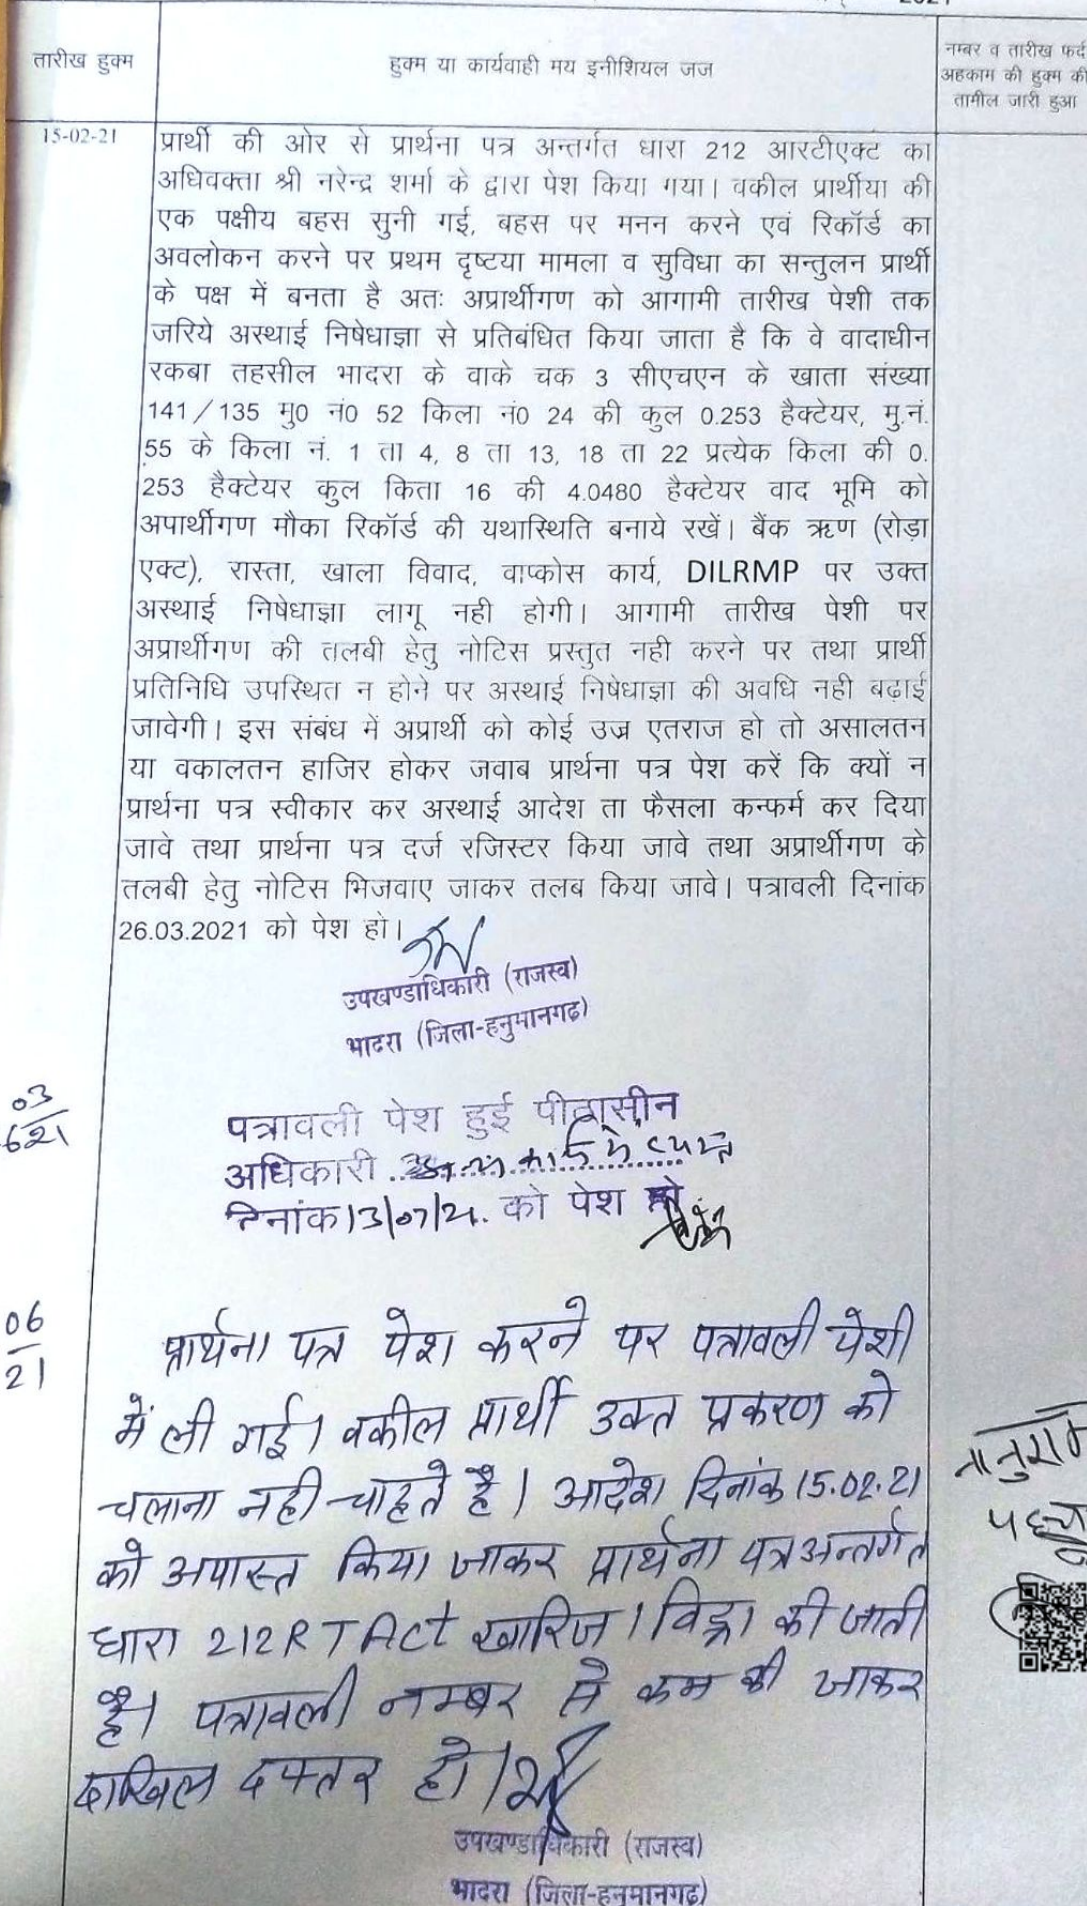 तारीख हुक्म
हुक्म या कार्यवाही मय इनीशियल जज
नम्बर व तारीख फर्द
अहकाम की हुक्म की
तामील जारी हुआ
15-02-21
प्रार्थी की ओर से प्रार्थना पत्र अन्तर्गत धारा 212 आरटीएक्ट का
अधिवक्ता श्री नरेन्द्र शर्मा के द्वारा पेश किया गया। वकील प्रार्थीया की
एक पक्षीय बहस सुनी गई, बहस पर मनन करने एवं रिकॉर्ड का
अवलोकन करने पर प्रथम दृष्टया मामला व सुविधा का सन्तुलन प्रार्थी
के पक्ष में बनता है अतः अप्रार्थीगण को आगामी तारीख पेशी तक
जरिये अस्थाई निषेधाज्ञा से प्रतिबंधित किया जाता है कि वे वादाधीन
रकबा तहसील भादरा के वाके चक 3 सीएचएन के खाता संख्या
141/135 मु0 नं0 52 किला नं0 24 की कुल 0.253 हैक्टेयर, मु.नं.
55 के किला नं. 1 ता 4, 8 ता 13, 18 ता 22 प्रत्येक किला की 0.
253 हैक्टेयर कुल किता 16 की 4.0480 हैक्टेयर वाद भूमि को
अपार्थीगण मौका रिकॉर्ड की यथास्थिति बनाये रखें। बैंक ऋण (रोड़ा
एक्ट), रास्ता, खाला विवाद, वाप्कोस कार्य, DILRMP पर उक्त
अस्थाई निषेधाज्ञा लागू नही होगी। आगामी तारीख पेशी पर
अप्रार्थीगण की तलबी हेतु नोटिस प्रस्तुत नही करने पर तथा प्रार्थी
प्रतिनिधि उपस्थित न होने पर अस्थाई निषेधाज्ञा की अवधि नही बढ़ाई
जावेगी। इस संबंध में अप्रार्थी को कोई उज्र एतराज हो तो असालतन
या वकालतन हाजिर होकर जवाब प्रार्थना पत्र पेश करें कि क्यों न
प्रार्थना पत्र स्वीकार कर अस्थाई आदेश ता फैसला कन्फर्म कर दिया
जावे तथा प्रार्थना पत्र दर्ज रजिस्टर किया जावे तथा अप्रार्थीगण के
तलबी हेतु नोटिस भिजवाए जाकर तलब किया जावे। पत्रावली दिनांक
26.03.2021 को पेश हो।
उपखण्डाधिकारी (राजस्व)
भादरा (जिला-हनुमानगढ़)
03
621
पत्रावली पेश हुई पीठासीन
अधिकारी कार्य में व्यस्त
दिनांक 13/07/21. को पेश हो
06
21
प्रार्थना पत्र पेश करने पर पत्रावली पेशी
में ली गई। वकील प्रार्थी उक्त प्रकरण को
चलाना नही चाहते है। आदेश दिनांक 15.02.21
को अपास्त किया जाकर प्रार्थना पत्र अन्तर्गत
धारा 212 R T Act खारिज। विड्रा की जाती
है। पत्रावली नम्बर से कम की जाकर
दाखिल दफ्तर हो।
उपखण्डाधिकारी (राजस्व)
भादरा (जिला-हनुमानगढ़)